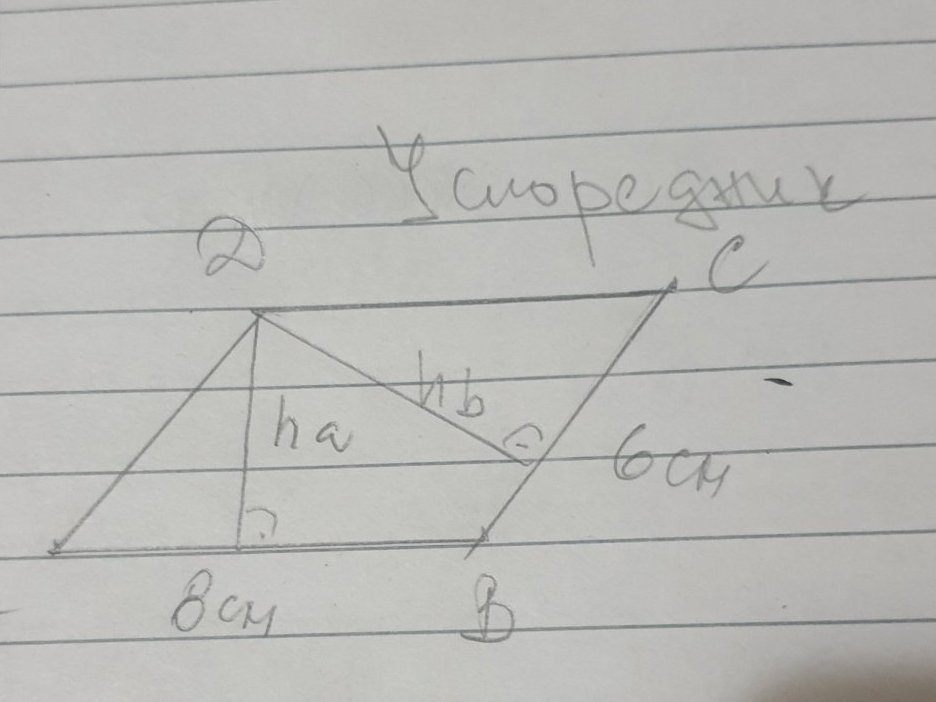 Успоредник
D C
hb
ha
6см
8см B